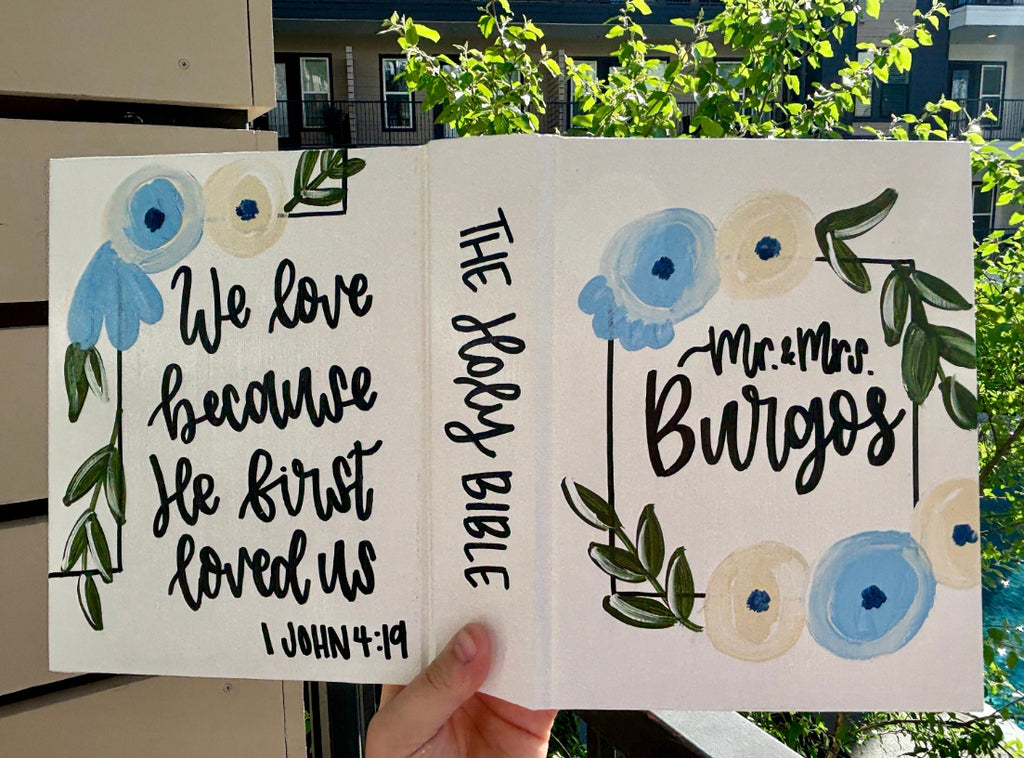 We love
because
He first
loved us
1 JOHN 4:19
THE Holy BIBLE
Mr. & Mrs.
Burgos